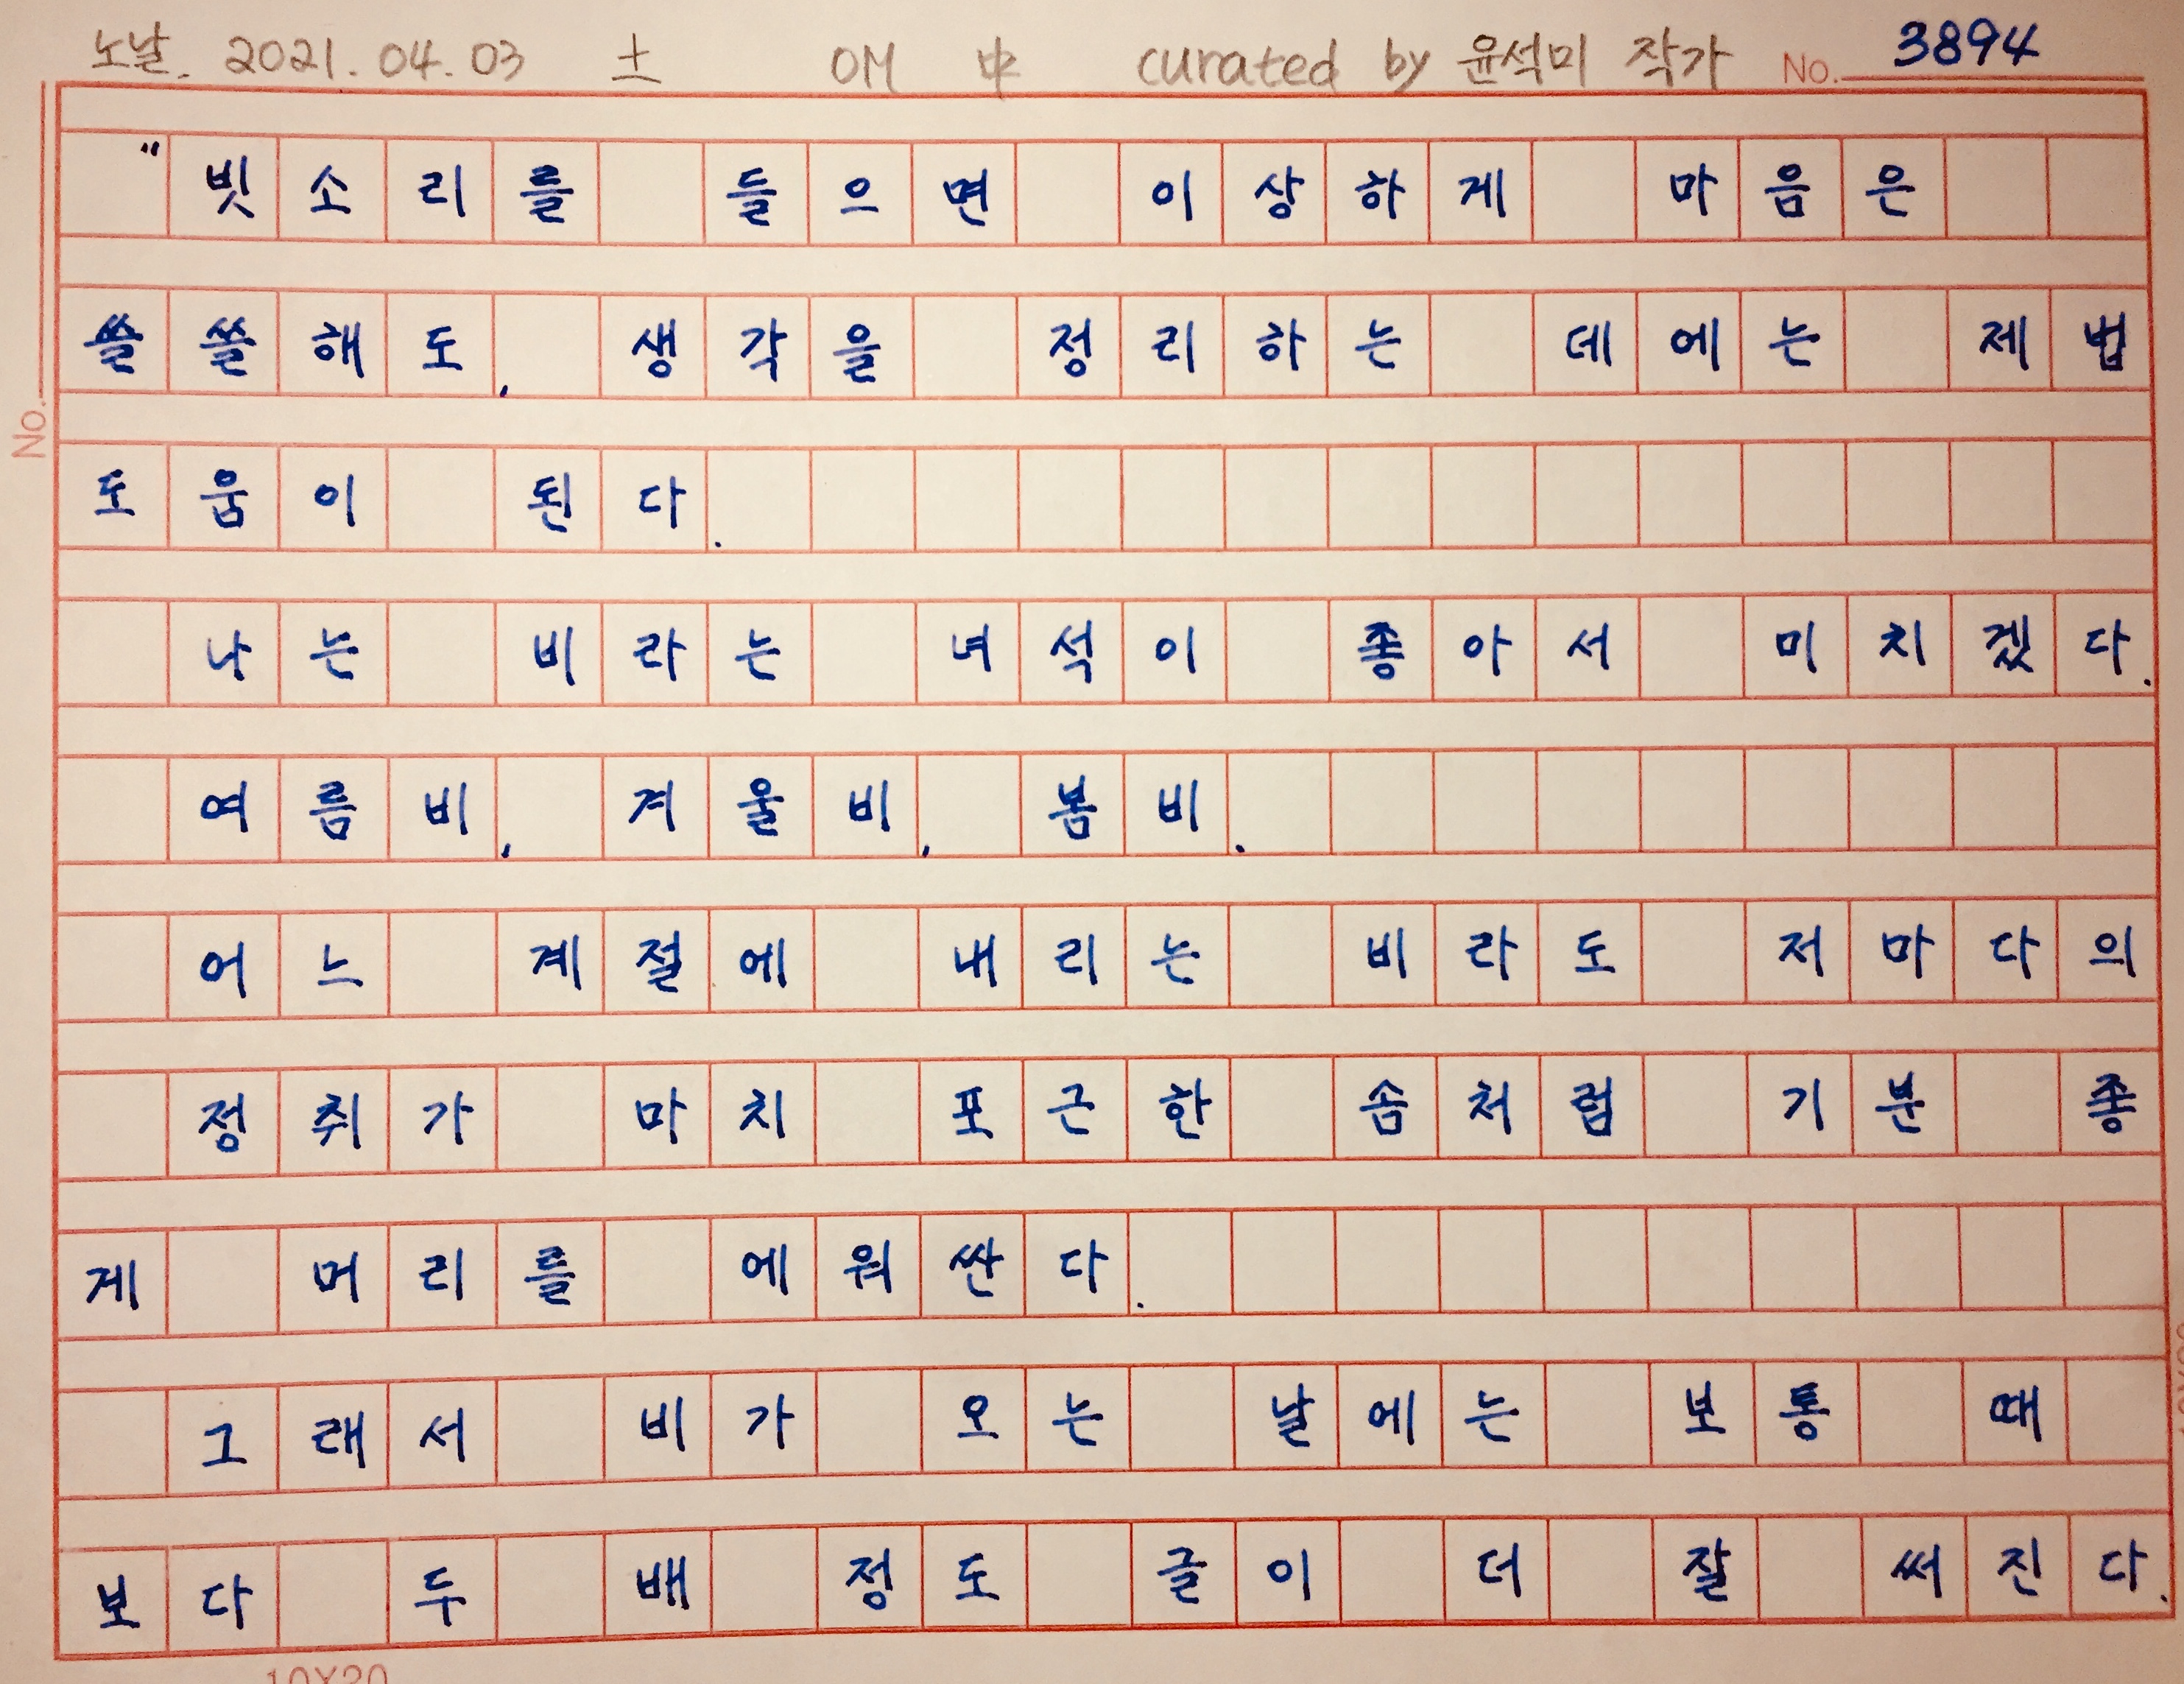 노날. 2021. 04. 03 土 OM 中 curated by 윤석미 작가 No. 3894
"빗소리를 들으면 이상하게 마음은
쓸쓸해도, 생각을 정리하는 데에는 제법
No.
도움이 된다.
나는 비라는 녀석이 좋아서 미치겠다.
여름비, 겨울비, 봄비.
어느 계절에 내리는 비라도 저마다의
정취가 마치 포근한 솜처럼 기분 좋
게 머리를 에워싼다.
그래서 비가 오는 날에는 보통 때
보다 두 배 정도 글이 더 잘 써진다.
10X20